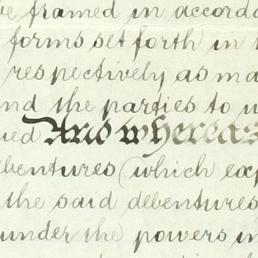 be framed in accorda
forms set forth in t
respectively as ma
nd the parties to w
ued And whereas
ebentures (which exp
the said debentures
under the powers in